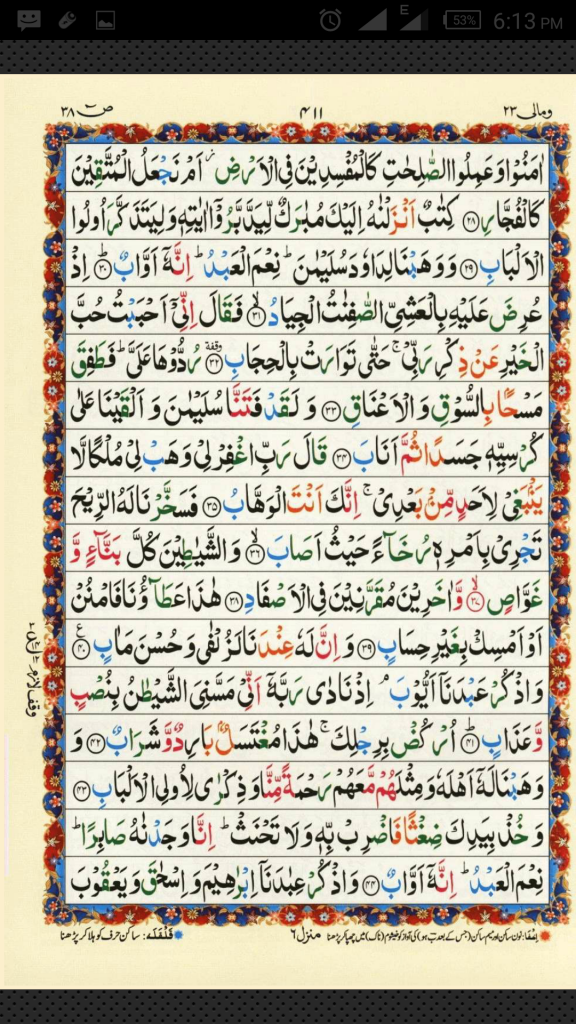 E 53% 6:13 PM
ومالی ٢٣ ٤١١ صٓ ٣٨
اٰمَنُوۡا وَعَمِلُوا الصّٰلِحٰتِ كَالۡمُفۡسِدِيۡنَ فِى الۡاَرۡضِ ؗ اَمۡ نَجۡعَلُ الۡمُتَّقِيۡنَ
كَالۡفُجَّارِ ﴿٢٨﴾ كِتٰبٌ اَنۡزَلۡنٰهُ اِلَيۡكَ مُبٰرَكٌ لِّيَدَّبَّرُوۡۤا اٰيٰتِهٖ وَلِيَتَذَكَّرَ اُولُوا
الۡاَلۡبَابِ ﴿٢٩﴾ وَوَهَبۡنَا لِدَاوٗدَ سُلَيۡمٰنَ ؕ نِعۡمَ الۡعَبۡدُ ؕ اِنَّهٗۤ اَوَّابٌ ؕ﴿٣٠﴾ اِذۡ
عُرِضَ عَلَيۡهِ بِالۡعَشِىِّ الصّٰفِنٰتُ الۡجِيَادُ ۙ﴿٣١﴾ فَقَالَ اِنِّىۡۤ اَحۡبَبۡتُ حُبَّ
الۡخَيۡرِ عَنۡ ذِكۡرِ رَبِّىۡ ۚ حَتّٰى تَوَارَتۡ بِالۡحِجَابِ ﴿٣٢﴾ وقفة رُدُّوۡهَا عَلَىَّ ؕ فَطَفِقَ
مَسۡحًۢا بِالسُّوۡقِ وَالۡاَعۡنَاقِ ﴿٣٣﴾ وَلَقَدۡ فَتَنَّا سُلَيۡمٰنَ وَاَلۡقَيۡنَا عَلٰى
كُرۡسِيِّهٖ جَسَدًا ثُمَّ اَنَابَ ﴿٣٤﴾ قَالَ رَبِّ اغۡفِرۡ لِىۡ وَهَبۡ لِىۡ مُلۡكًا لَّا
يَنۡۢبَغِىۡ لِاَحَدٍ مِّنۡۢ بَعۡدِىۡ ۚ اِنَّكَ اَنۡتَ الۡوَهَّابُ ﴿٣٥﴾ فَسَخَّرۡنَا لَهُ الرِّيۡحَ
تَجۡرِىۡ بِاَمۡرِهٖ رُخَآءً حَيۡثُ اَصَابَ ۙ﴿٣٦﴾ وَالشَّيٰطِيۡنَ كُلَّ بَنَّآءٍ وَّ
غَوَّاصٍ ۙ﴿٣٧﴾ وَّاٰخَرِيۡنَ مُقَرَّنِيۡنَ فِى الۡاَصۡفَادِ ﴿٣٨﴾ هٰذَا عَطَآؤُنَا فَامۡنُنۡ
اَوۡ اَمۡسِكۡ بِغَيۡرِ حِسَابٍ ﴿٣٩﴾ وَاِنَّ لَهٗ عِنۡدَنَا لَزُلۡفٰى وَحُسۡنَ مَاٰبٍ ﴿٤٠﴾ ع
وَاذۡكُرۡ عَبۡدَنَاۤ اَيُّوۡبَ ۘ اِذۡ نَادٰى رَبَّهٗۤ اَنِّىۡ مَسَّنِىَ الشَّيۡطٰنُ بِنُصۡبٍ
وَّعَذَابٍ ؕ﴿٤١﴾ اُرۡكُضۡ بِرِجۡلِكَ ۚ هٰذَا مُغۡتَسَلٌۢ بَارِدٌ وَّشَرَابٌ ﴿٤٢﴾ وَ
وَهَبۡنَا لَهٗۤ اَهۡلَهٗ وَمِثۡلَهُمۡ مَّعَهُمۡ رَحۡمَةً مِّنَّا وَذِكۡرٰى لِاُولِى الۡاَلۡبَابِ ﴿٤٣﴾
وَخُذۡ بِيَدِكَ ضِغۡثًا فَاضۡرِبۡ بِّهٖ وَلَا تَحۡنَثۡ ؕ اِنَّا وَجَدۡنٰهُ صَابِرًا ؕ
نِعۡمَ الۡعَبۡدُ ؕ اِنَّهٗۤ اَوَّابٌ ﴿٤٤﴾ وَاذۡكُرۡ عِبٰدَنَاۤ اِبۡرٰهِيۡمَ وَاِسۡحٰقَ وَيَعۡقُوۡبَ
اِخفَا: نون ساکن اور میم ساکن (جس کے بعد ب ہو) کی آواز کو خیشوم (ناک) میں چھپا کر پڑھنا منزل ٦ قَلْقَلَه: ساکن حرف کو ہلا کر پڑھنا